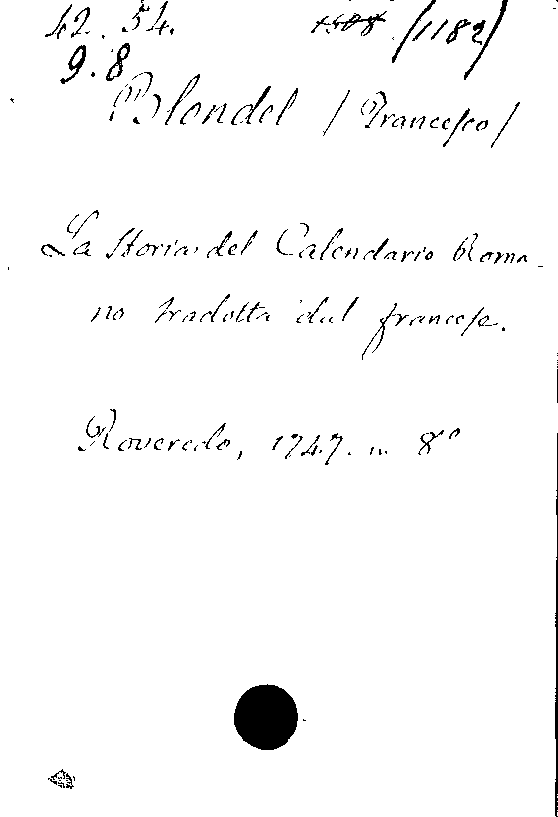 42. 54. 1508 (1182)
9.8
Blondel /Francesco/
La Storia del Calendario Roma-
no tradotta dal francese.
Roveredo, 1747. in 8º